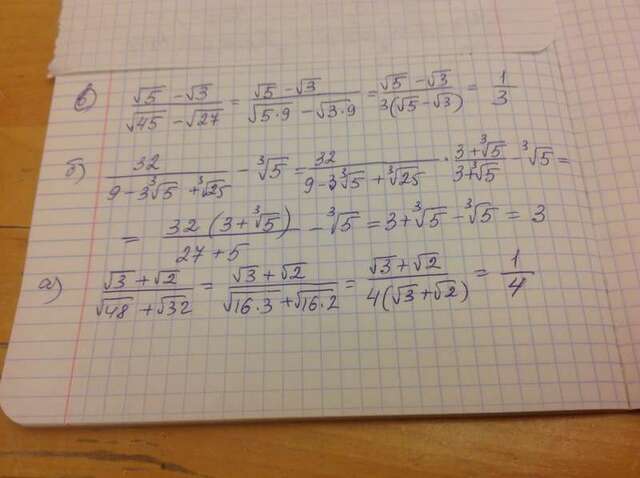 в) (√5 - √3)/(√45 - √27) = (√5 - √3)/(√5·9 - √3·9) = (√5 - √3)/(3(√5 - √3)) = 1/3
б) 32/(9 - 3∛5 + ∛25) - ∛5 = 32/(9 - 3∛5 + ∛25) · (3 + ∛5)/(3 + ∛5) - ∛5 =
= 32(3 + ∛5)/(27 + 5) - ∛5 = 3 + ∛5 - ∛5 = 3
а) (√3 + √2)/(√48 + √32) = (√3 + √2)/(√16·3 + √16·2) = (√3 + √2)/(4(√3 + √2)) = 1/4